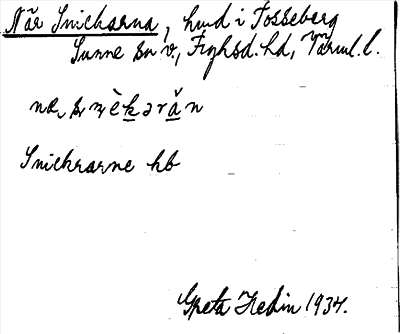 När Snickarna, hmd i Fosseberg
Sunne sn v, Fryksd. hd, Värml. l.
Snickrarne hb
Greta Hedin 1934.